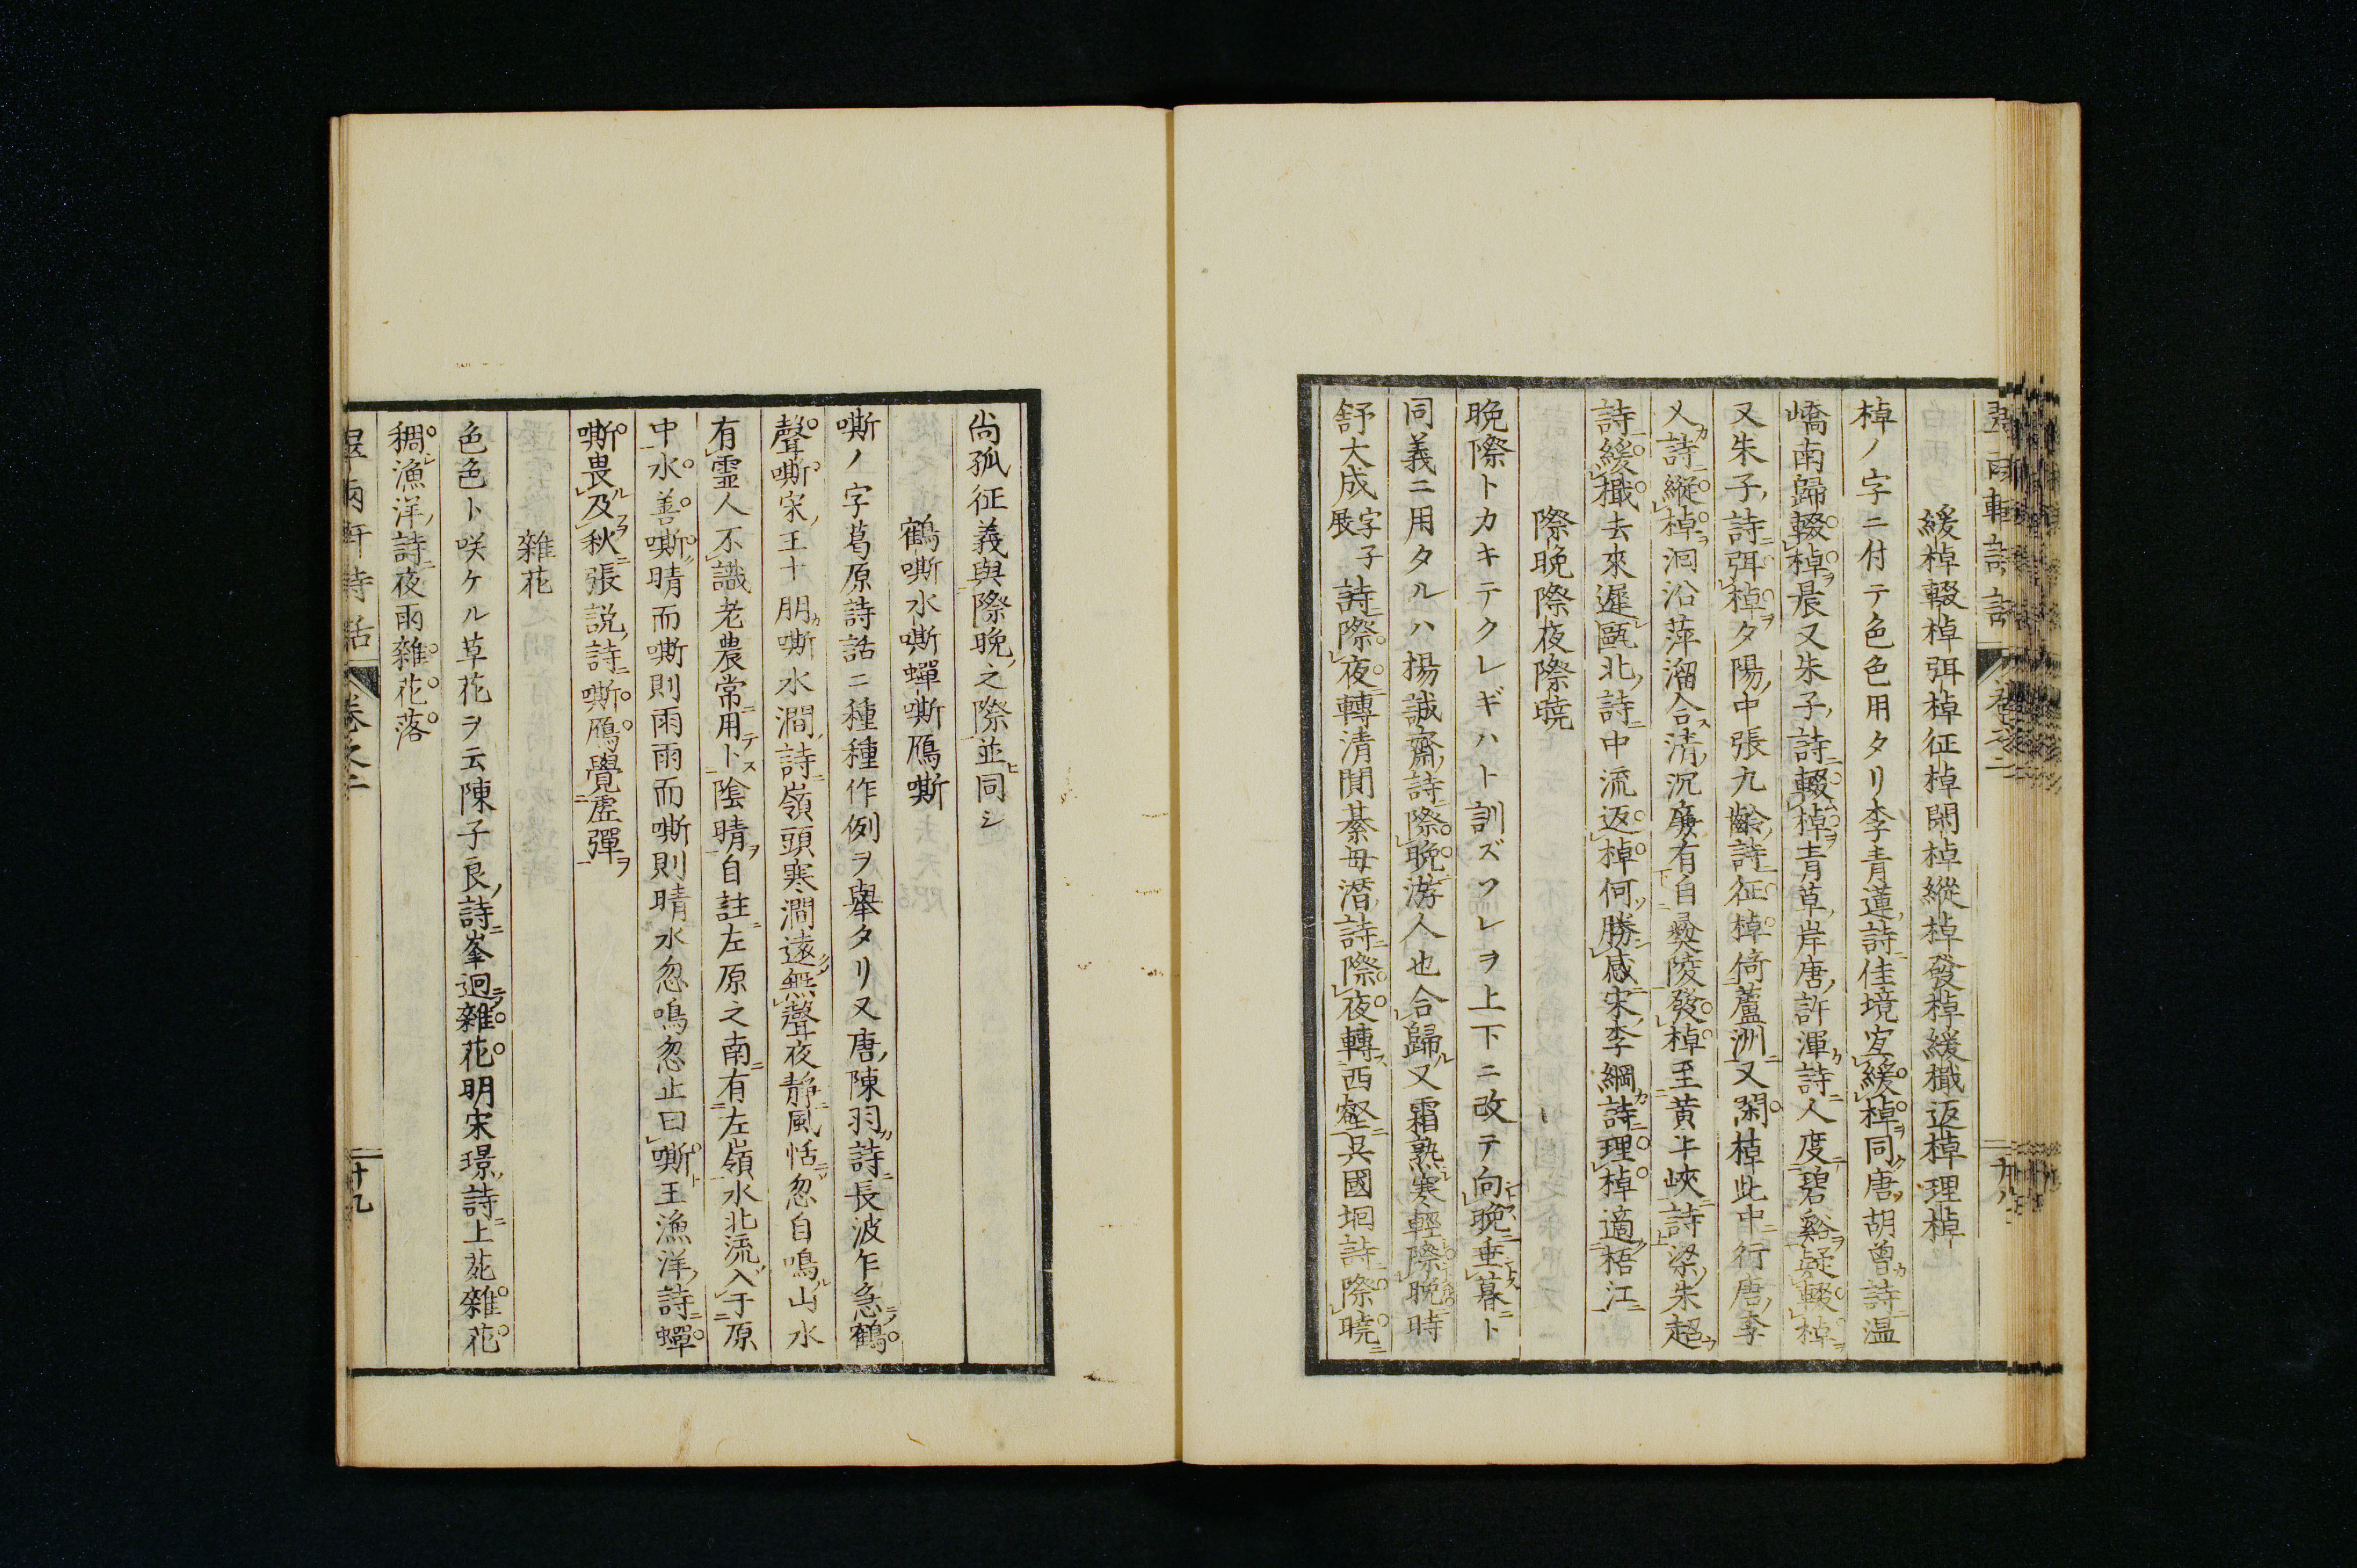 緩棹輟棹弭棹征棹閑棹縱棹發棹緩檝返棹理棹
棹ノ字ニ付テ色色用タリ李青蓮詩佳境宜緩棹同唐胡曾詩温
嶠南歸輟棹晨又朱子詩輟棹青草岸唐許渾詩人度碧谿疑輟棹
又朱子詩弭棹夕陽中張九齡詩征棹倚蘆洲又閑棹此中行唐李
乂詩縱棹洄沿萍溜合清沉廣有自夔陵發棹至黄牛峽詩梁朱超
詩緩檝去來遲甌北詩中流返棹何勝感宋李綱詩理棹適梧江
際晩際夜際暁
晩際トカキテクレギハト訓ズソレヲ上下ニ改テ向晩垂暮ト
同義ニ用タルハ揚誠齋詩際晩游人也合歸又霜熟寒輕際晩時
舒大成字子展詩際夜轉清聞綦毋潛詩際夜轉西壑吴國垌詩際曉
尚孤征義與際晩之際並同シ
鶴嘶水嘶蟬嘶鴈嘶
嘶ノ字葛原詩話ニ種種作例ヲ舉タリ又唐陳羽詩長波乍急鶴
聲嘶宋王十朋嘶水澗詩嶺頭寒澗遠無聲夜静風恬忽自鳴山水
有霊人不識老農常用卜陰晴自註左原之南有左嶺水北流入于原
中水善嘶晴而嘶則雨雨而嘶則晴水忽鳴忽止曰嘶王漁洋詩蟬
嘶畏及秋張説詩嘶鴈覺虚彈
雜花
色色ト咲ケル草花ヲ云陳子良詩峯迥雜花明宋璟詩上苑雜花
稠漁洋詩夜雨雜花落
翠雨軒詩話 卷之二 十九